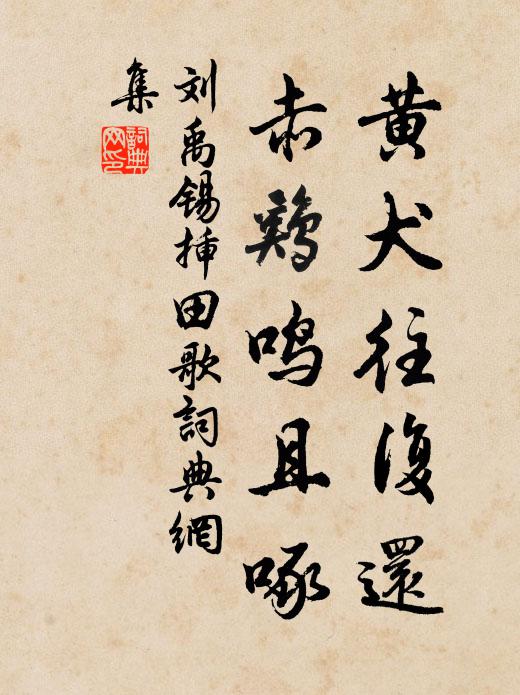 黄犬往復還
赤鷄鳴且啄
刘禹锡插田歌詞典網
集
詞典
网印